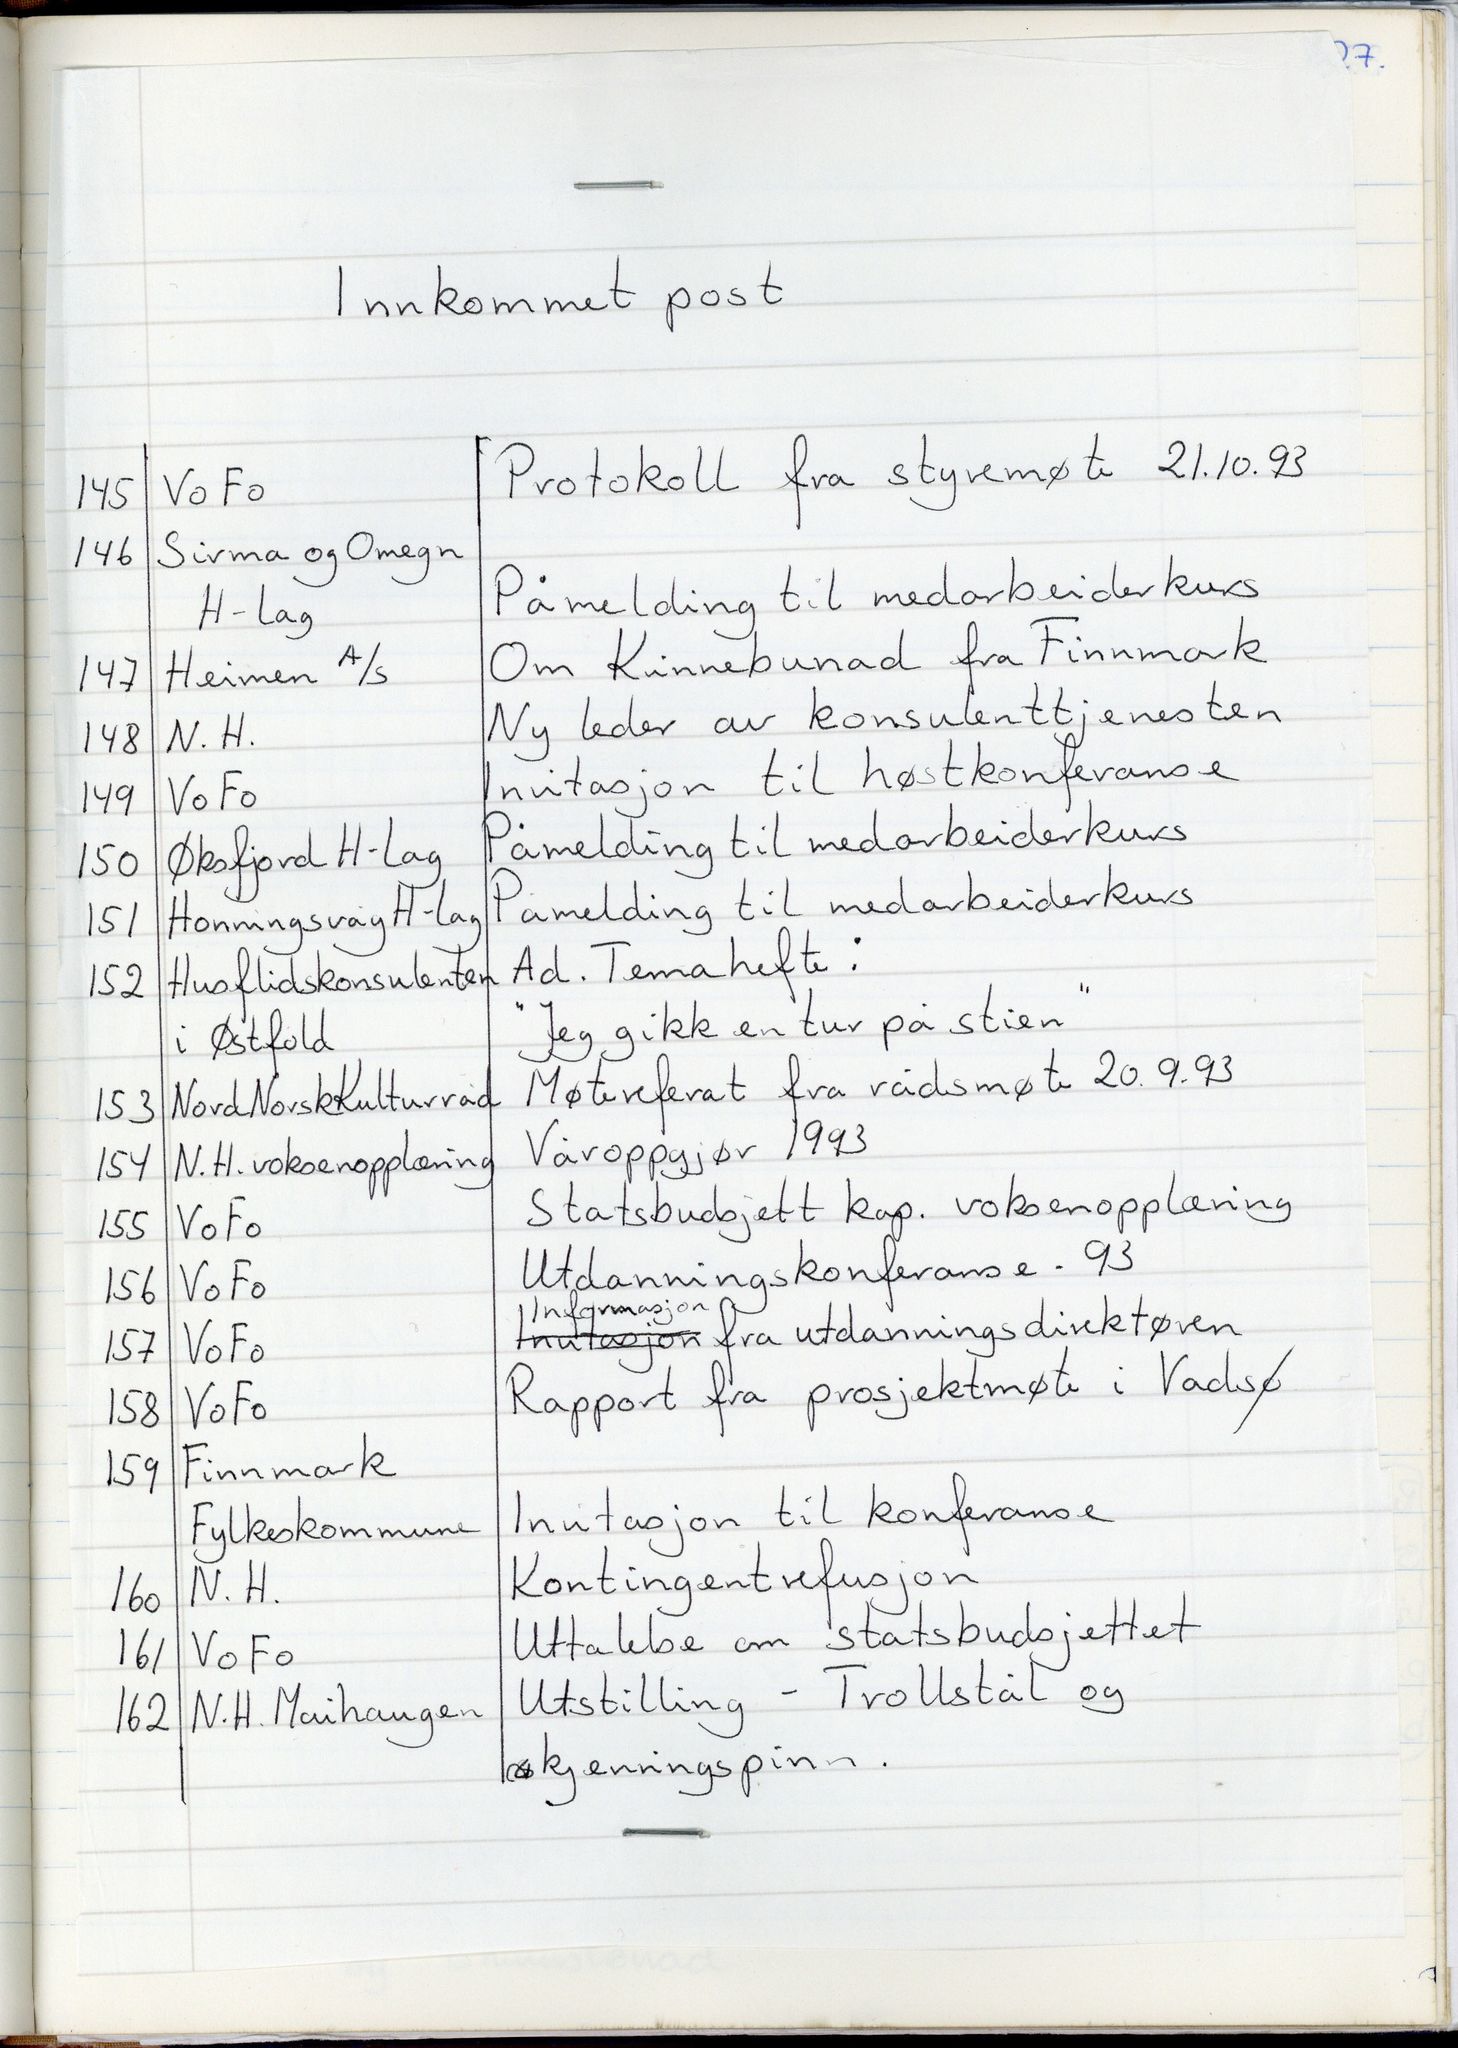 7.
Innkommet post
145 VoFo Protokoll fra styremøte 21.10.93
146 Sirma og Omegn
H-lag Påmelding til medarbeiderkurs
147 Heimen A/s Om Kvinnebunad fra Finnmark
148 N.H. Ny leder av konsulenttjenesten
149 VoFo Invitasjon til høstkonferanse
150 Øksfjord H-lag Påmelding til medarbeiderkurs
151 Honningsvåg H-lag Påmelding til medarbeiderkurs
152 Husflidskonsulenten Ad. Temahefte:
i Østfold "Jeg gikk en tur på stien"
153 Nord Norsk Kulturråd Møtereferat fra rådsmøte 20.9.93
154 N.H. voksenopplæring Våroppgjør 1993
155 VoFo Statsbudsjett kap. voksenopplæring
156 VoFo Utdanningskonferanse - 93
Informasjon
157 VoFo Invitasjon fra utdanningsdirektøren
158 VoFo Rapport fra prosjektmøte i Vadsø
159 Finnmark
Fylkeskommune Invitasjon til konferanse
160 N.H. Kontingentrefusjon
161 VoFo Uttalelse om statsbudsjettet
162 N.H. Maihaugen Utstilling - Trollstål og
kjerringspinn.